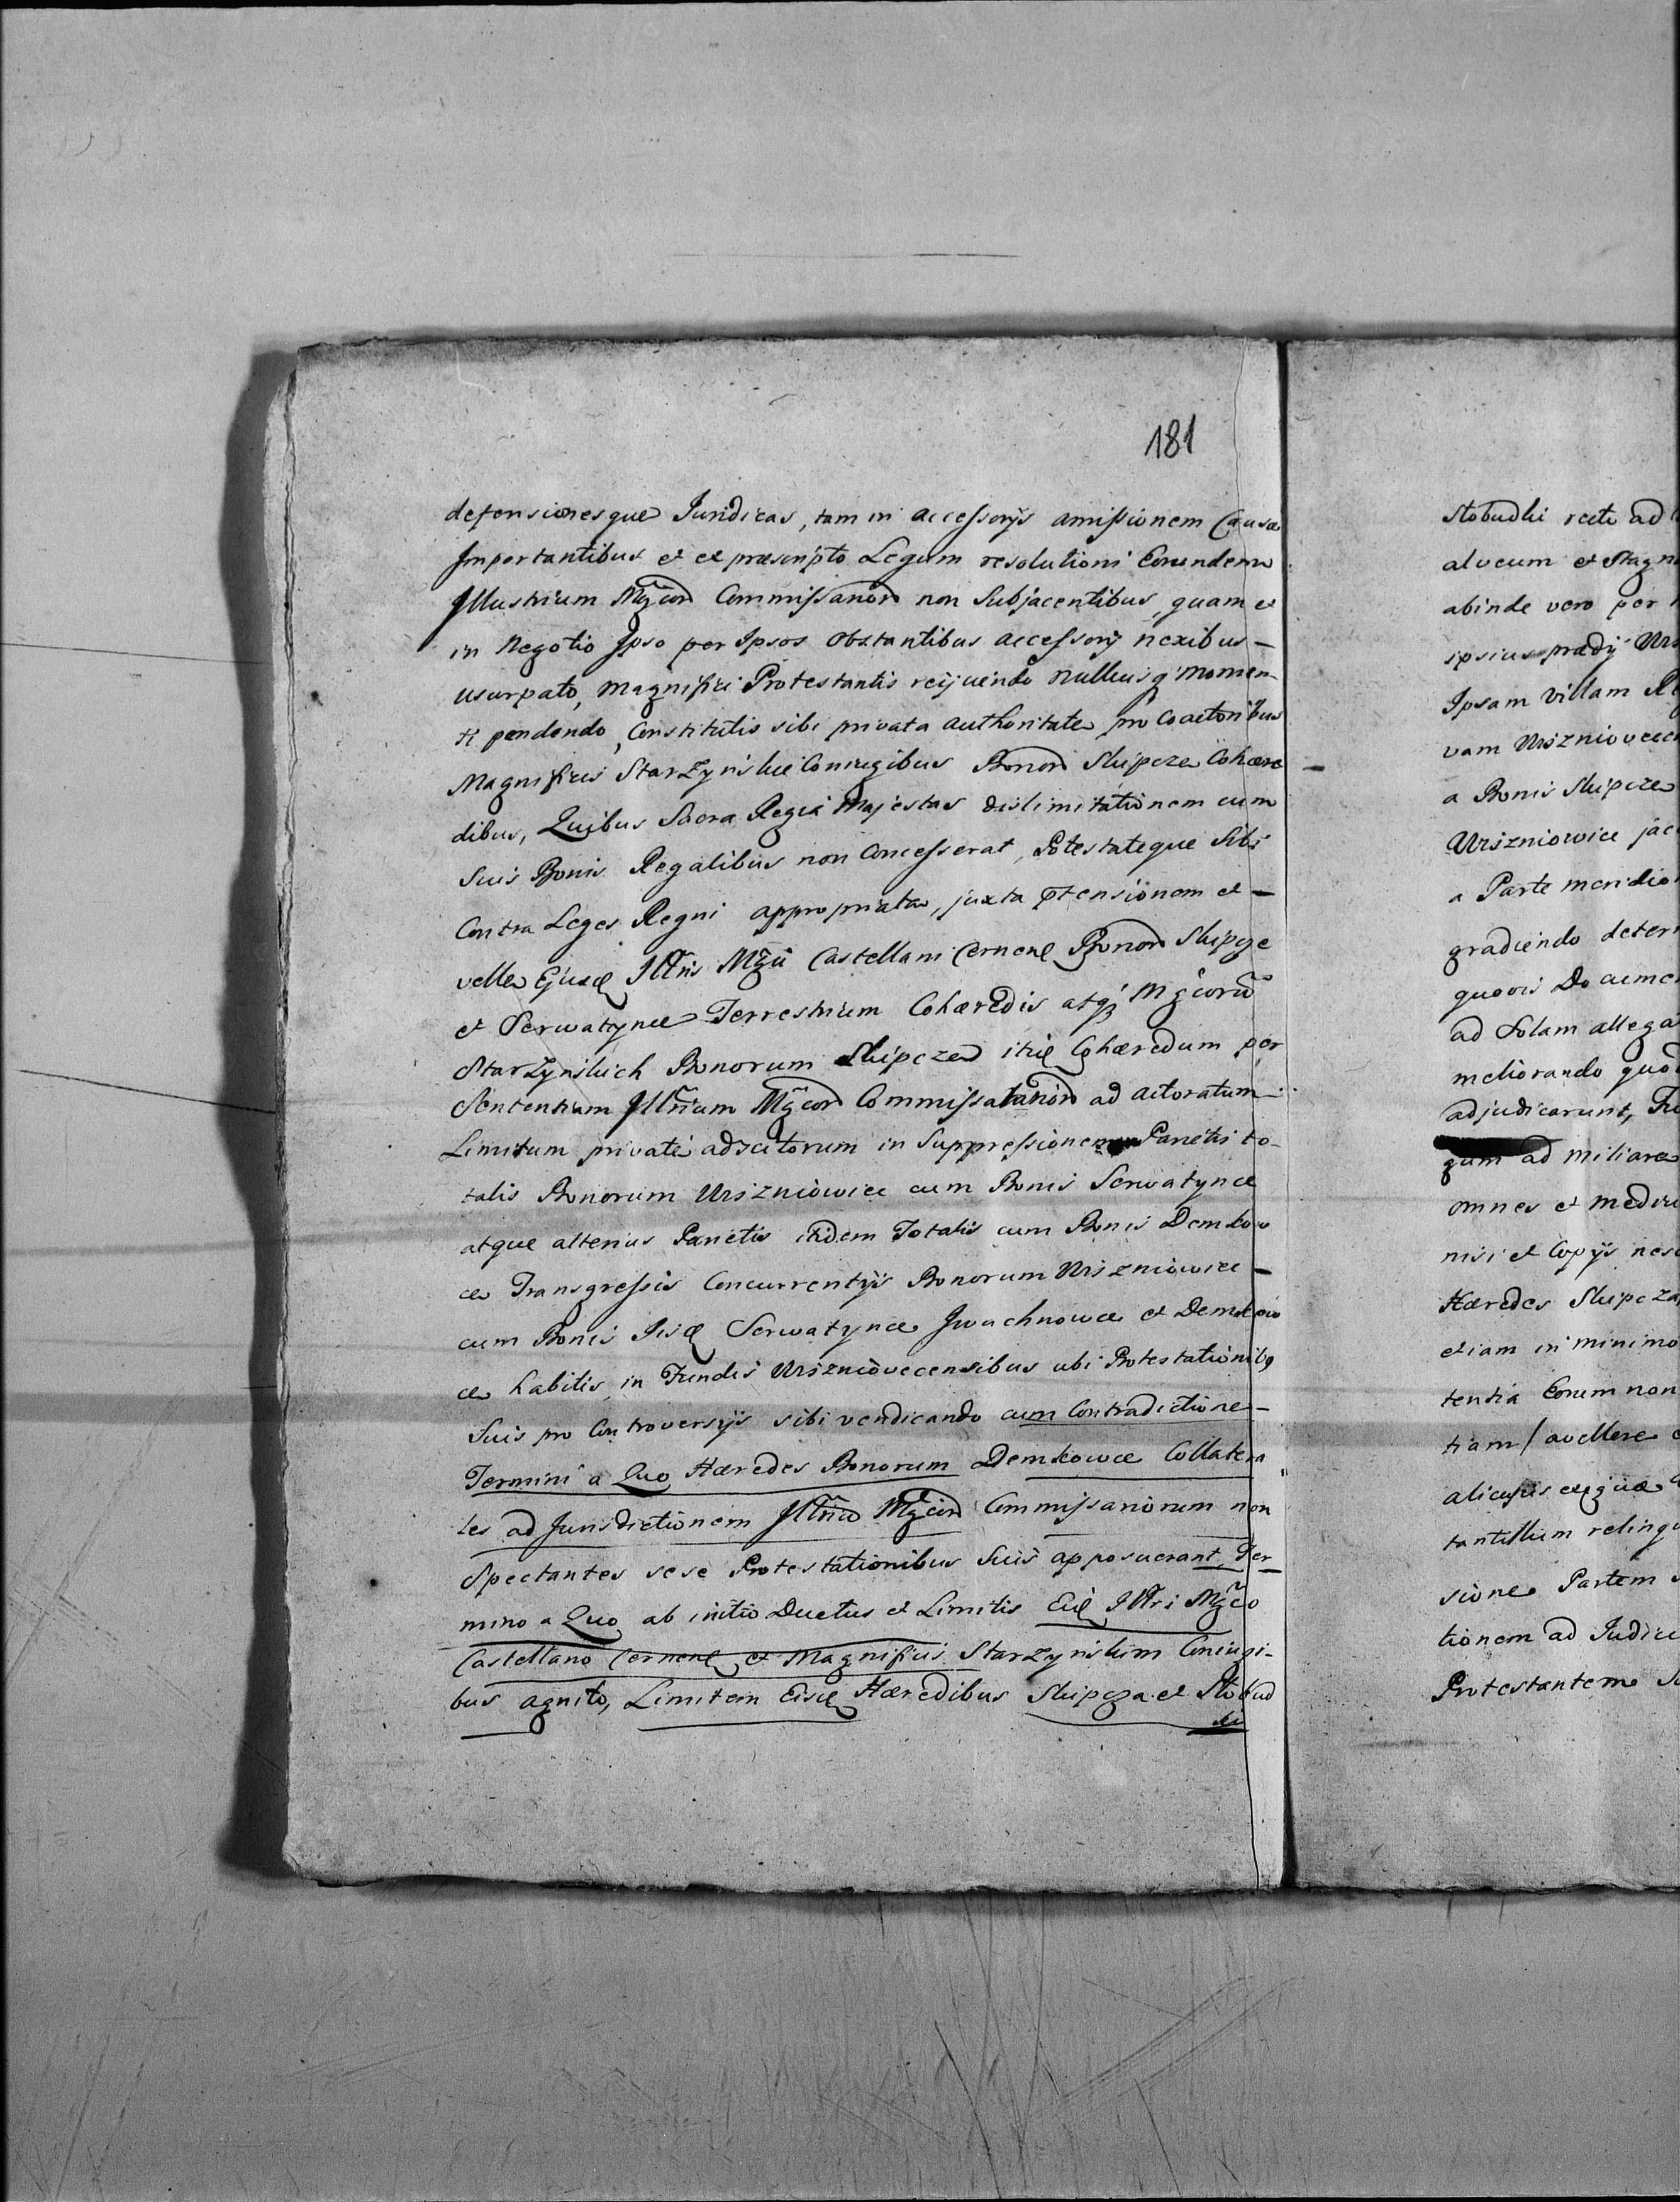 181
defensionesque Juridicas, tam in accessorys amissionem Causæ
Importantibus et ex præscripto Legum resolutioni Eorundem
Illustrium Mgcorũ Commissariorũ non Subjacentibus, quam et
in Negotio Ipso per Ipsos obstantibus accessorij nexibus –
usurpato, Magnifici Protestantis reijciendo nulliusq́ momen-
ti pendendo, Constitutis sibi privata authoritate pro Coactoribus
Magnificis Starzynskie Coniugibus Bonorũ Skipcze Cohære
dibus, Quibus Sacra Regia Majestas dislimitationem cum
Suis Bonis Regalibus non Concesserat, Potestateque Sibi
Contra Leges Regni appropriata, juxta ptensionem et –
velle Ejusd Illris Mgci Castellani Cernen Bonorũ Skipcze
et Serwatynce Terrestrium Cohæredis atq́ Mgcorũ
Starzynskich Bonorum Skipcze itid Cohæredum per
Sententiam Illrium Mgcorũ Commissariorũ ad actoratum
Limitum privatè adscitorum in Suppressionem Parietis to-
talis Bonorum Uriszniowice cum Bonis Serwatynce
atque alterius Parietis itidem Totalis cum Bonis Demkow
ce Transgressis Concurrentijs Bonorum Uriszniowice –
cum Bonis Iisd Serwatynce Iwachnowce et Demkow
ce habitis in Fundis Uriszniovecensibus ubi Protestationibq
Suis pro Controversijs sibi vendicando cum Contradictione –
Termini a Quo Hæredes Bonorum Demkowce Collatera
les ad Jurisdictionem Illrium Mgcorũ Commissariorum non
Spectantes sese Protestationibus Suis apposuerant, Ter-
mino a Quo ab initio Ductus et Limitis Eid Illri Mgco
Castellano Cernen et Magnificis Starzynskim Coniugi-
bus agnito, Limitem Eisd Hæredibus Skipcza et Stobud
ki
stobudki recte ad
alveum et Stagn
abinde vero per
ipsius prædij
Ipsam villam
vam Uriszniovec
a Bonis Skipcze
Uriszniowice jac
a Parte meridio
gradiendo deter
quovis Documen
ad Solam allega
meliorando quod
adjudicarunt,
gum ad miliare
omnes et mediu
nisi et Copijs nes
Hæredes Skipcza
etiam in minimo
tentia Eorum non
tiam / avellere
alicujus exiguæ
tantillum relinqu
sione Partem
tionem ad Judic
Protestantem